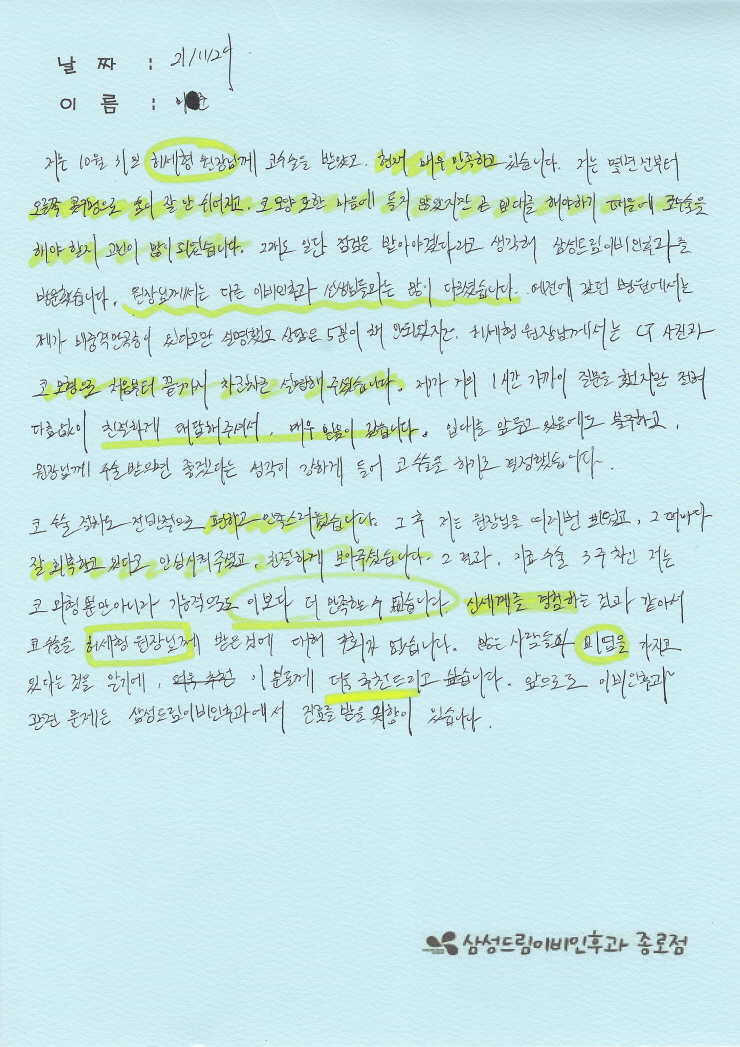 날 짜 : 21/11/29
이 름 : 이 준
저는 10월 31일 허세형 원장님께 코수술을 받았고, 현재 매우 만족하고 있습니다. 저는 몇년 전부터
오른쪽 콧구멍으로 숨이 잘 안 쉬어지고, 코 모양 또한 마음에 들지 않았지만 곧 입대를 해야하기 때문에 코수술을
해야 할지 고민이 많이 되었습니다. 그래도 일단 점검은 받아야겠다라고 생각해 삼성드림이비인후과를
방문했습니다. 원장님께서는 다른 이비인후과 선생님들과는 많이 다르셨습니다. 예전에 갔던 병원에서는
제가 비중격만곡증이 있다고만 설명했고 상담은 5분이 채 안되었지만, 허세형 원장님께서는 CT 사진과
코 모형으로 처음부터 끝까지 차근차근 설명해 주셨습니다. 제가 거의 1시간 가까이 질문을 했지만 전혀
다름없이 친절하게 대답해주셔서, 매우 믿음이 갔습니다. 입대를 앞두고 있음에도 불구하고,
원장님께 수술 받으면 좋겠다는 생각이 강하게 들어 코 수술을 하기로 결정했습니다.
코 수술 절차도 전반적으로 편하고 만족스러웠습니다. 그 후 저는 원장님을 여러번 뵈었고, 그 때마다
잘 회복하고 있다고 안심시켜 주셨고, 친절하게 보아주셨습니다. 그 결과, 지금 수술 3주차인 저는
코 외형 뿐만아니라 기능적으로도 이보다 더 만족할 수 없습니다. 신세계를 경험하는 것과 같아서
코 수술을 허세형 원장님께 받은 것에 대해 후회가 없습니다. 많은 사람들이 비염을 가지고
있다는 것을 알기에, 더욱 추천 이 분들께 더욱 추천드리고 싶습니다. 앞으로도 이비인후과
관련 문제는 삼성드림이비인후과에서 진료를 받을 의향이 있습니다.
삼성드림이비인후과 종로점